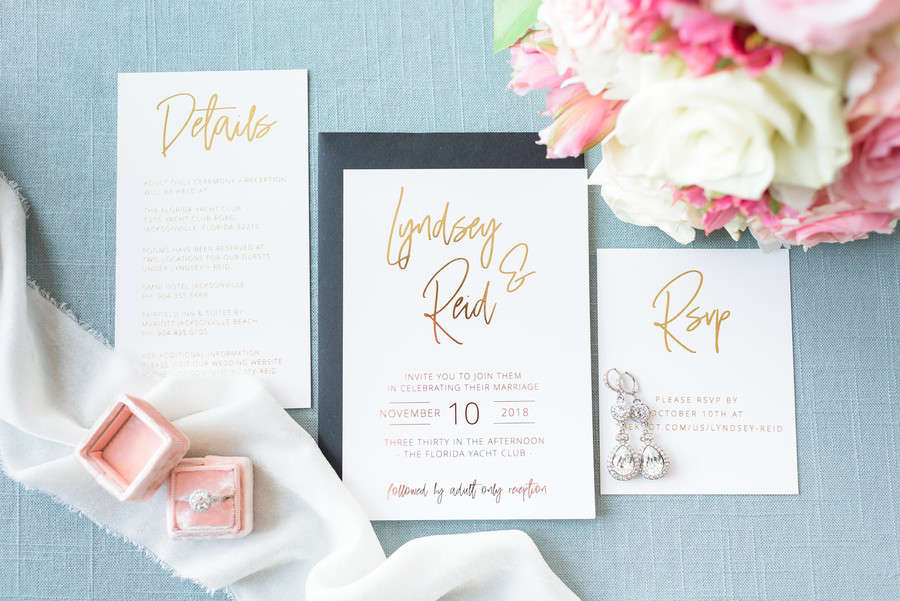 Details
ADULT ONLY CEREMONY + RECEPTION
WILL BE HELD AT
THE FLORIDA YACHT CLUB
YACHT CLUB ROAD
JACKSONVILLE, FLORIDA 32210
ROOMS HAVE BEEN RESERVED AT
TWO LOCATIONS FOR OUR GUESTS
UNDER LYNDSEY + REID
HOTEL JACKSONVILLE
FAIRFIELD INN & SUITES BY
JACKSONVILLE BEACH
ADDITIONAL INFORMATION
PLEASE VISIT OUR WEDDING WEBSITE
Lyndsey
&
Reid
INVITE YOU TO JOIN THEM
IN CELEBRATING THEIR MARRIAGE
NOVEMBER 10 2018
THREE THIRTY IN THE AFTERNOON
- THE FLORIDA YACHT CLUB -
followed by adult only reception
Rsvp
PLEASE RSVP BY
OCTOBER 10TH AT
KNOT.COM/US/LYNDSEY-REID